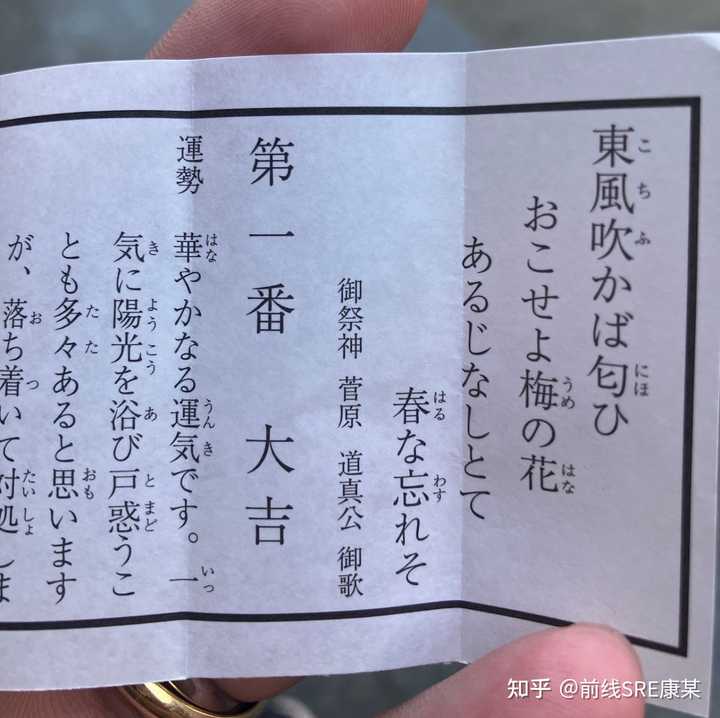 東風吹かば匂ひ
おこせよ梅の花
あるじなしとて
春な忘れそ
御祭神 菅原 道真公 御歌
第一番 大吉
運勢 華やかなる運気です。一
気に陽光を浴び戸惑うこ
とも多々あると思います
が、落ち着いて対処しま
知乎 @前线SRE康某